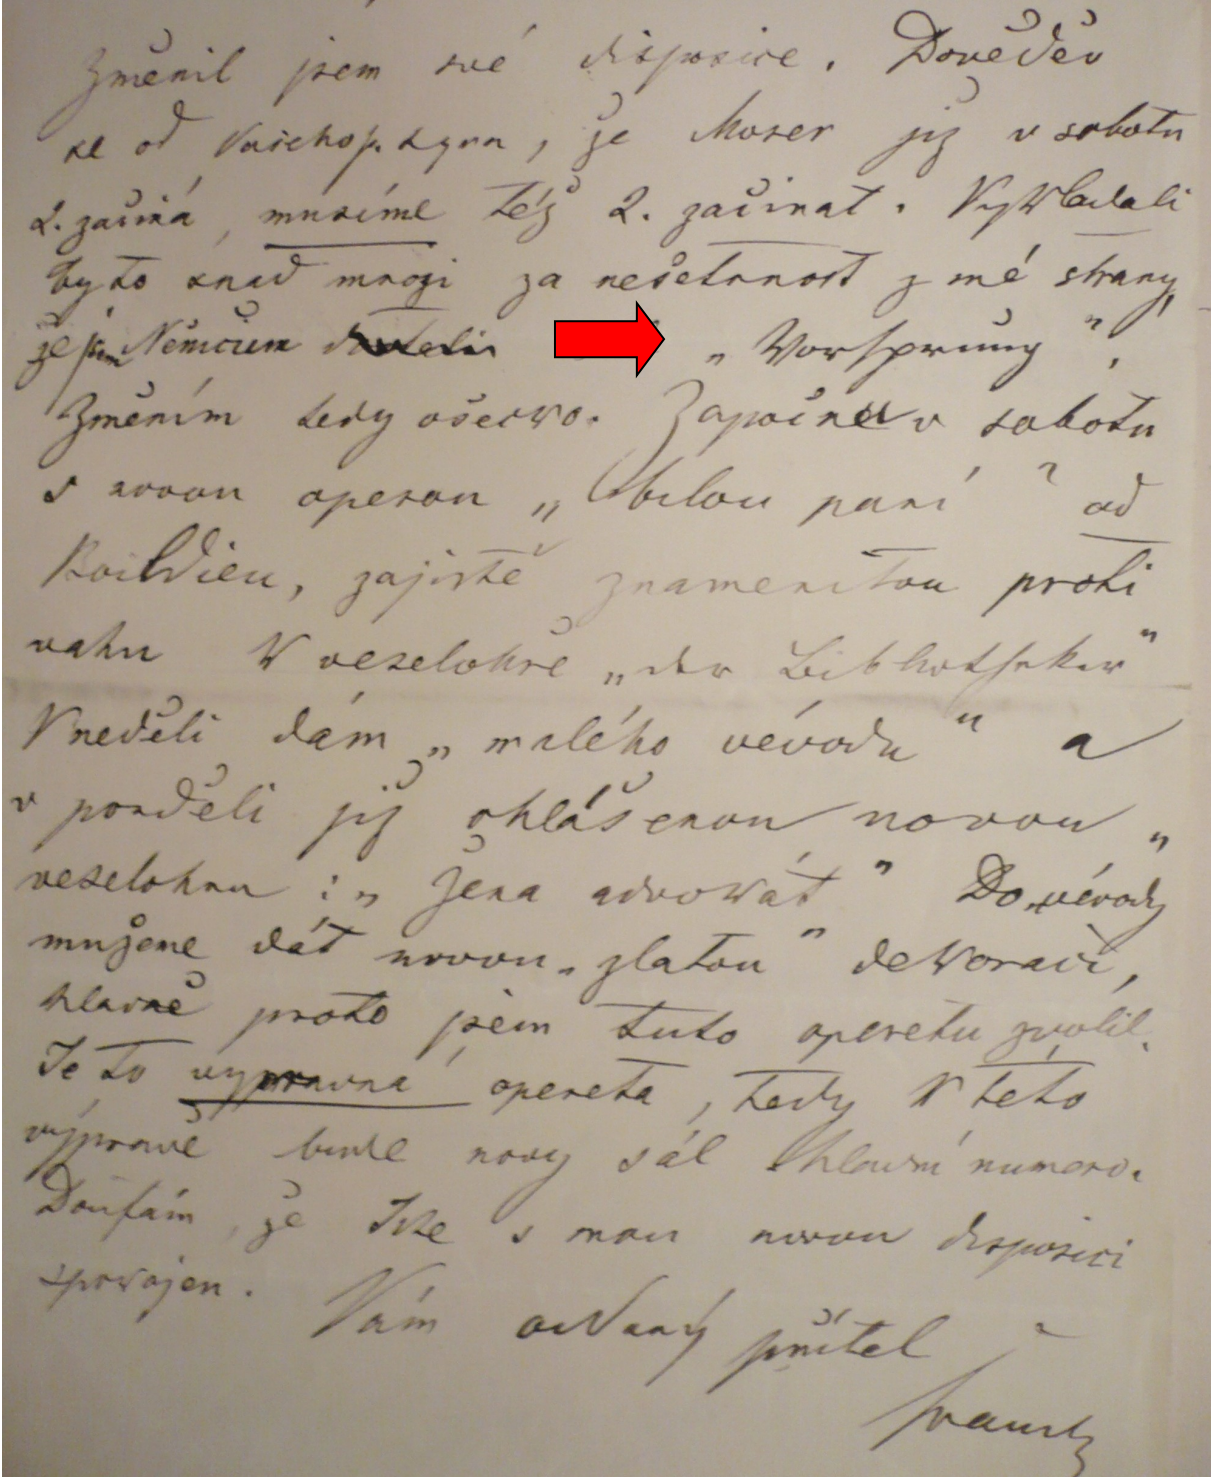 Změnil jsem své disposice. Dověděv
se od Vašeho p. syna, že Moser již v sobotu
2. začíná, musíme též 2. začínat. Vykládali
by to snad mnozí za nešetrnost z mé strany,
že jsem Němcům „Vorsprung”,
Změním tedy všecko. Započneme v sobotu
s novou operou „bílou paní” od
Boildieu, zajisté znamenitou proti
vahu k veselohře „der Bibliothekar”
V neděli dám „malého vévodu” a
v ponděli již ohlášenou novou „
veselohru: „Žena advokát” Do „vévody
mužeme dát novou „zlatou” dekoraci,
hlavně proto jsem tuto operetu zvolil.
Je to výpravná opereta, tedy k této
výpravě bude nový sál hlavní numero.
Doufám, že Jste s mou novou disposicí
spokojen.
Vám oddaný přítel